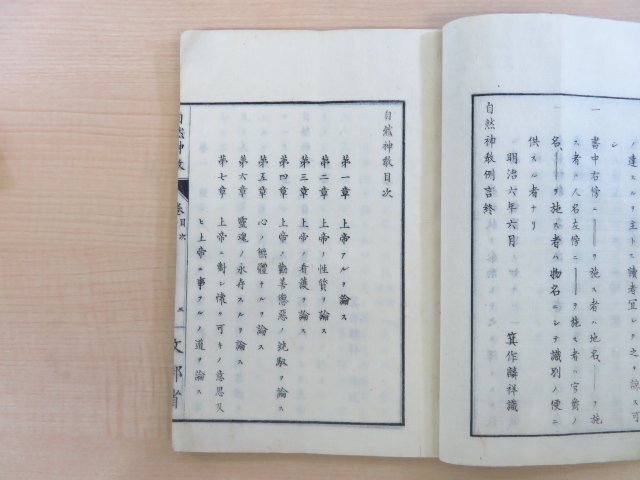 ノ達スルヲ主トス讀者宜シク之ヲ諒ス可
シ
一 書中右傍ニ——ヲ施ス者ハ地名——ヲ施
ス者ハ人名左傍ニ——ヲ施ス者ハ官爵ノ
名、——ヲ施ス者ハ物名ニシテ識別ノ便ニ
供スル者ナリ
明治六年六月 箕作麟祥識
自然神敎例言終
自然神敎目次
第一章 上帝アルヲ論ス
第二章 上帝ノ性質ヲ論ス
第三章 上帝ノ看護ヲ論ス
第四章 上帝ノ勸善懲惡ノ統馭ヲ論ス
第五章 心ノ無體ナルヲ論ス
第六章 靈魂ノ永存スルヲ論ス
第七章 上帝ニ對シ懷ク可キノ意思及
ヒ上帝ニ事フルノ道ヲ論ス
自然神敎 卷目次 文部省